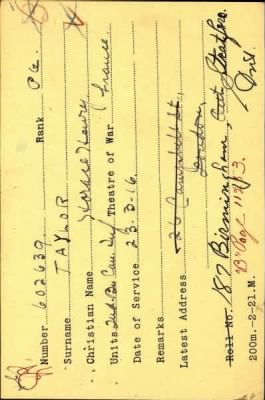 Number 602639 Rank Pte.
Surname TAYLOR
Christian Name Horace Henry
Units 2nd Bn Can Inf Theatre of War France
Date of Service 23-3-16
Remarks
Latest Address 26 Campbell St.
London,
Roll No. 87 Birmingham, Ont.
B Page 11713. Ont.
200m.-2-21.M.